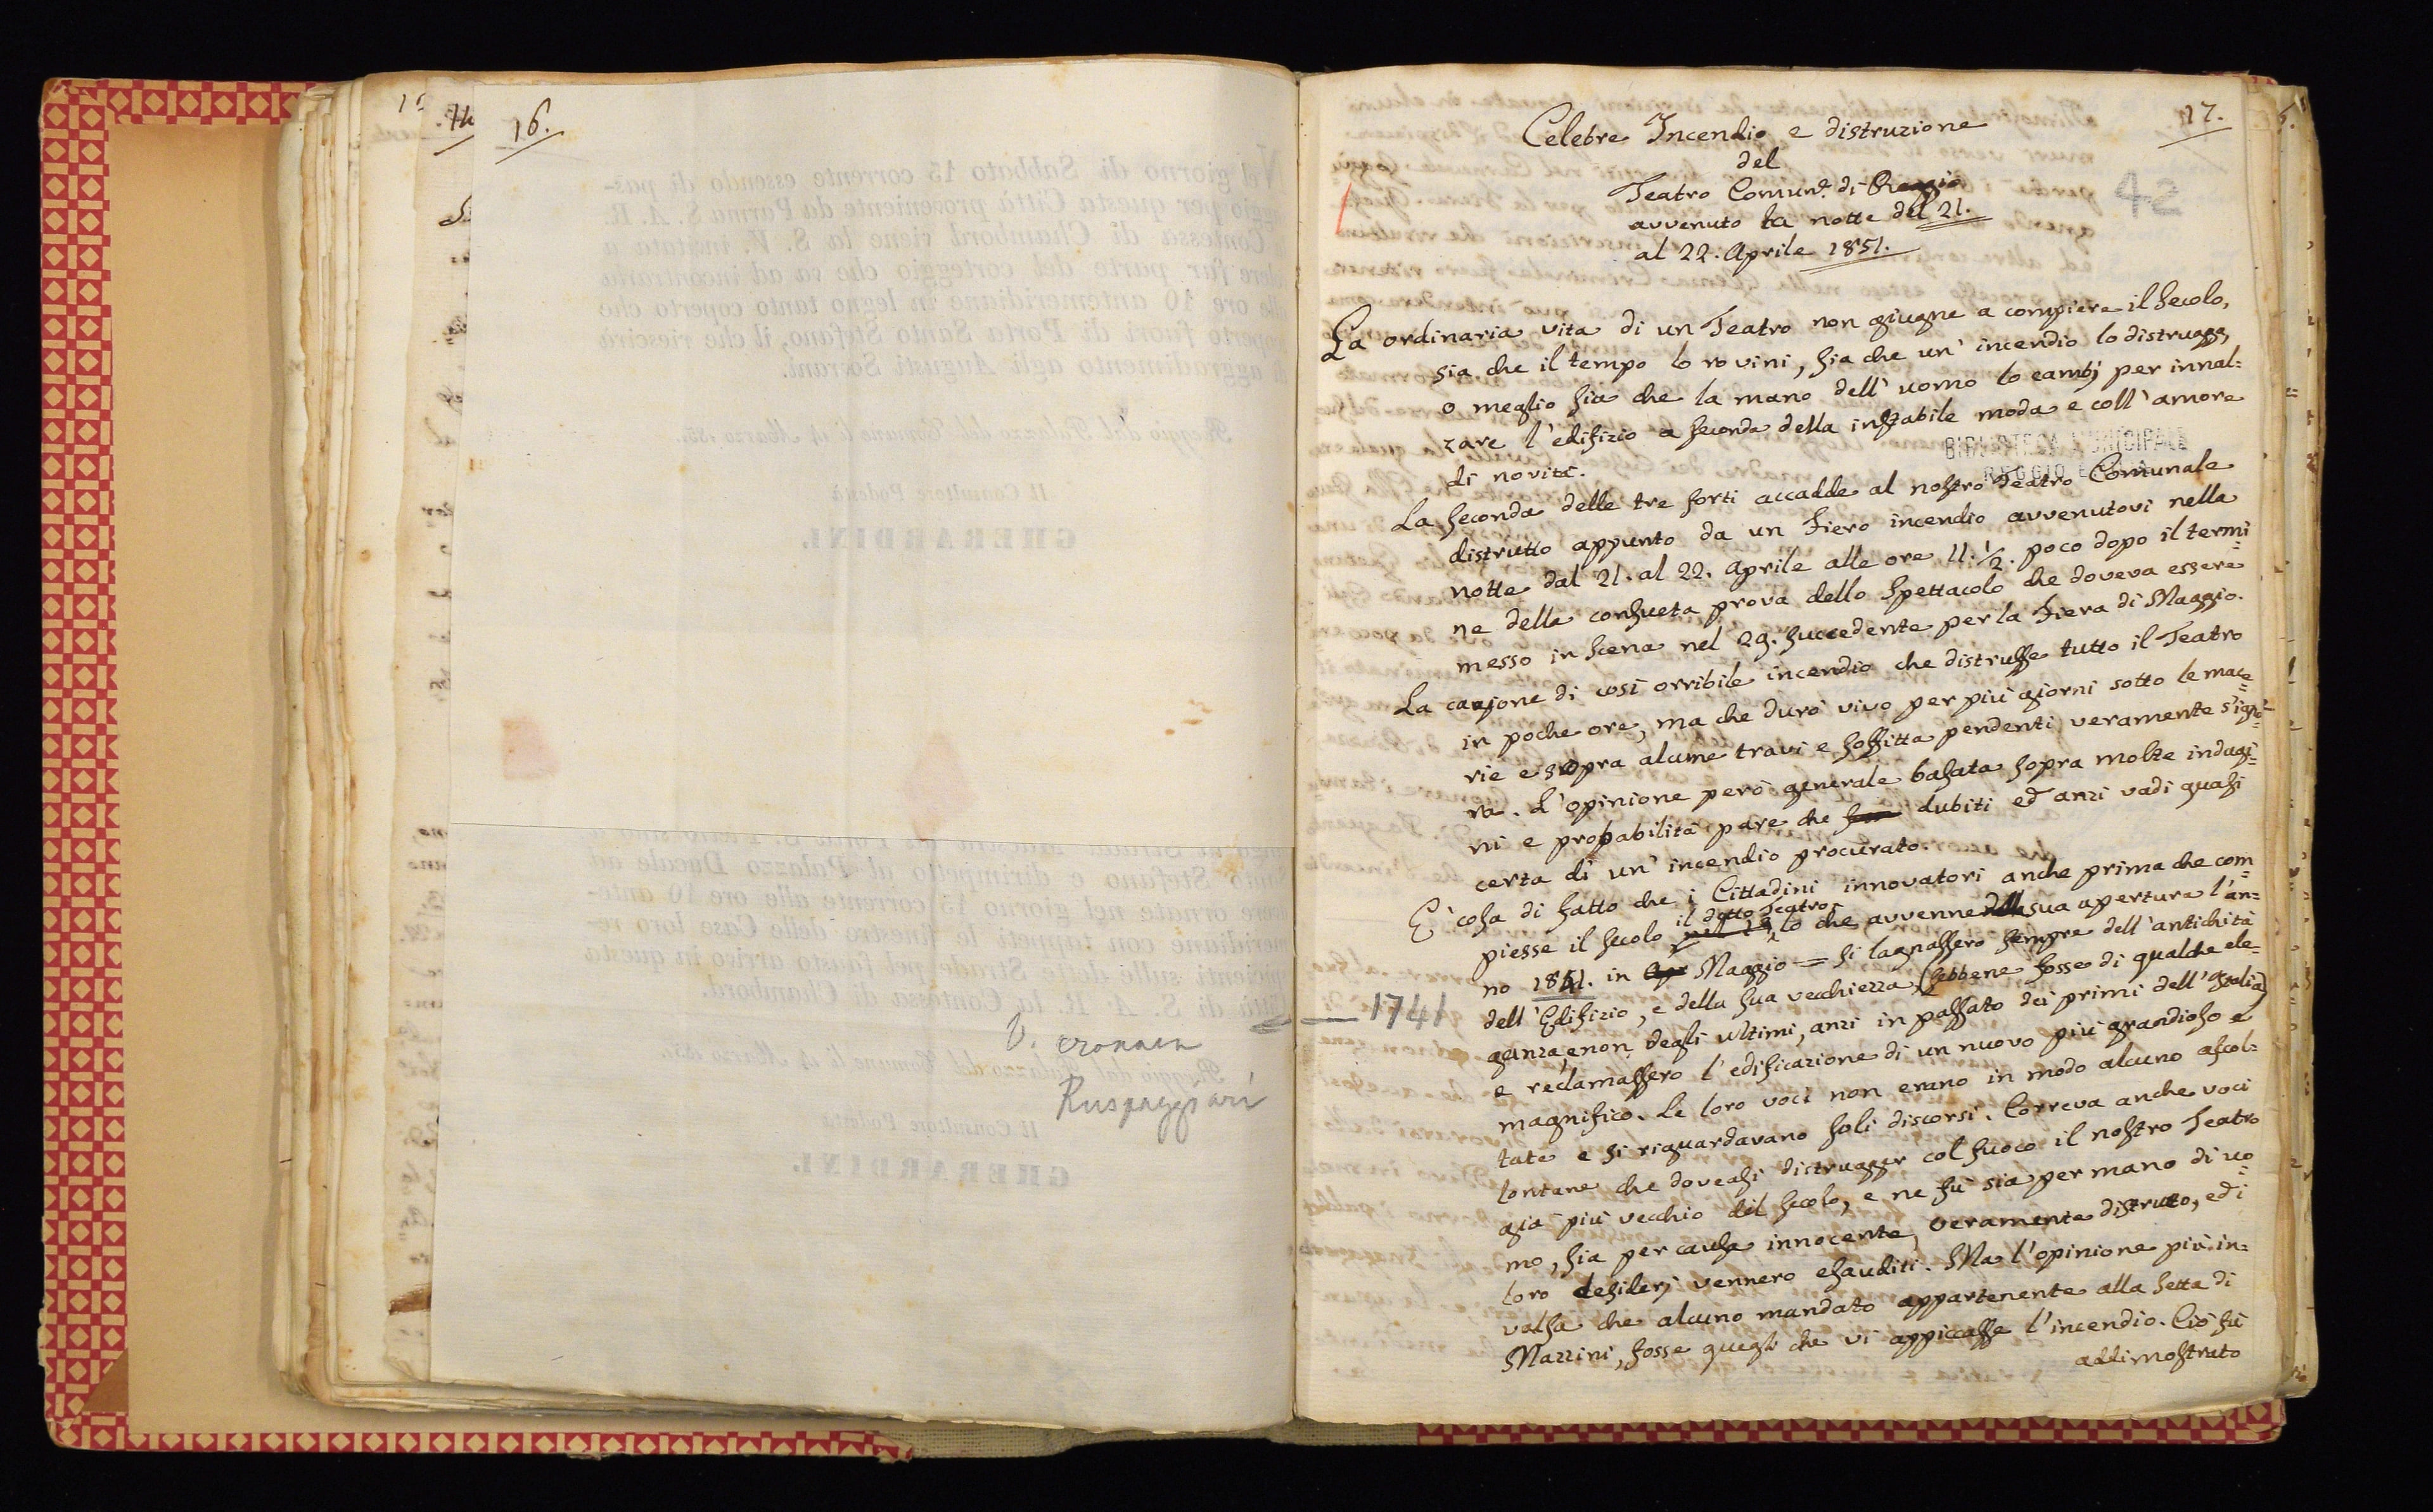 16.
V. cronaca
Ruspaggiari
17.
42
Celebre Incendio e distruzione
del
Teatro Comun.e di Reggio
avvenuto la notte del 21.
al 22. Aprile 1851.
La ordinaria vita di un Teatro non giugne a compiere il Secolo,
sia che il tempo lo rovini, sia che un' incendio lo distrugg,
o meglio sia che la mano dell' uomo lo cambj per innal=
zare l'edifizio a seconda della instabile moda e coll' amore
di novità.
BIBLIOTECA MUNICIPALE
REGGIO EMILIA
La seconda delle tre sorti accadde al nostro Teatro Comunale
distrutto appunto da un fiero incendio avvenutovi nella
notte dal 21. al 22. Aprile alle ore 11. 1/2. poco dopo il termi=
ne della consueta prova dello Spettacolo che doveva essere
messo in Scena nel 29. succedente per la Fiera di Maggio.
La cagione di così orribile incendio che distrusse tutto il Teatro
in poche ore, ma che durò vivo per più giorni sotto le mace=
rie e sopra alcune travi e soffitta pendenti, veramente s'igno=
ra. L'opinione però generale basata sopra molte indagi=
ni e probabilità pare che dubiti ed anzi vadi quasi
certa di un' incendio procurato.
E' cosa di fatto che i Cittadini innovatori anche prima che com=
piesse il Secolo il detto Teatro, lo che avvenne della sua apertura l'an=
no 1841. in Maggio = si lagnassero sempre dell' antichità
1741
dell' Edifizio, e della sua vecchiezza (sebbene fosse di qualche ele=
ganza, e non degli ultimi, anzi in passato dei primi dell' Italia)
e reclamassero l'edificazione di un nuovo più grandioso e
magnifico. Le loro voci non erano in modo alcuno ascol=
tate e si riguardavano soli discorsi. Correva anche voci
lontane che doveasi distrugger col fuoco il nostro Teatro
già più vecchio del Secolo, e ne fu sia per mano di uo=
mo, sia per causa innocente, veramente distrutto, ed i
loro desiderj vennero esauditi. Ma l'opinione più in=
valsa che alcuno mandato appartenente alla Setta di
Mazzini, fosse quegli che vi appiccasse l'incendio. Ciò fu
addimostrato